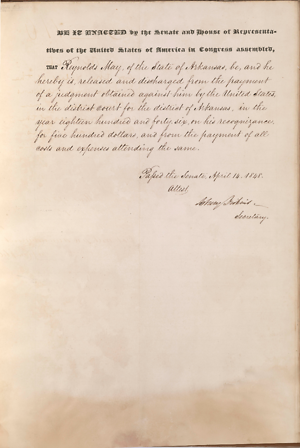 BE IT ENACTED by the Senate and House of Representa-
tives of the United States of America in Congress assembled,
THAT Reynolds May, of the State of Arkansas, be, and he
hereby is, released and discharged from the payment
of a judgment obtained against him by the United States,
in the district court for the district of Arkansas, in the
year eighteen hundred and forty six, on his recognizance
for five hundred dollars, and from the payment of all
costs and expenses attending the same.
Passed the Senate, April 14, 1848.
Attest,
Secretary.